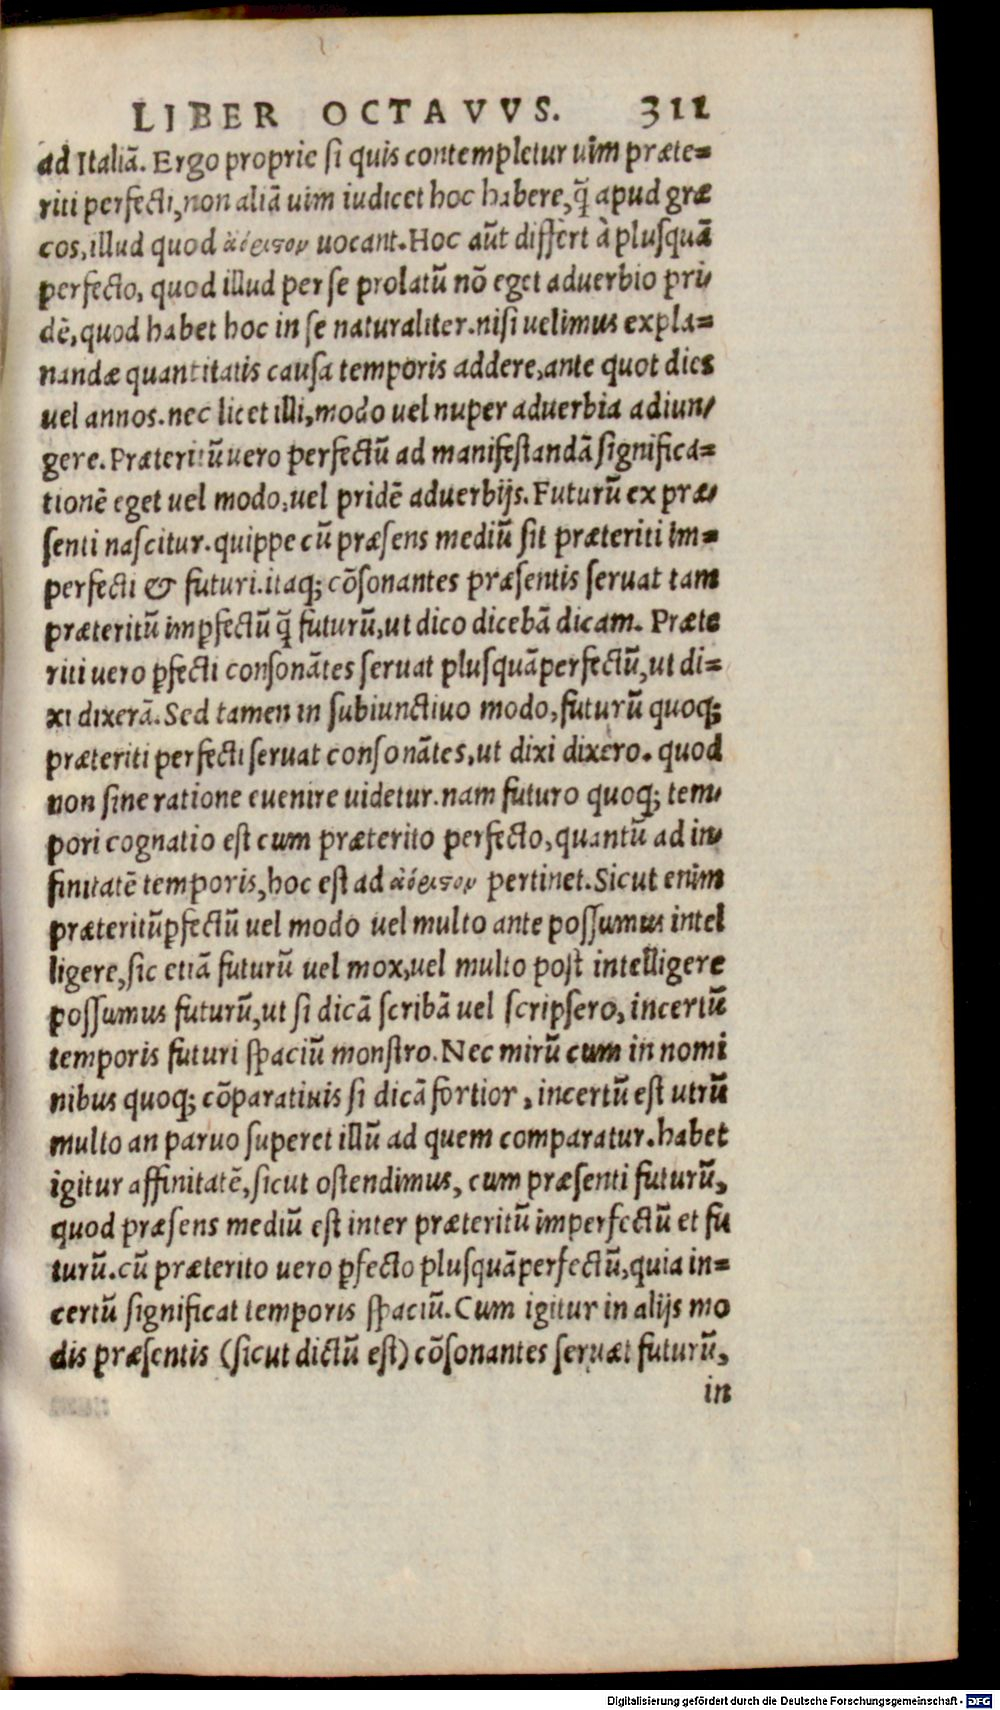 LIBER OCTAVVS. 311
ad Italiã. Ergo proprie si quis contempletur uim præte=
riti perfecti, non aliã uim iudicet hoc habere, q̃ apud græ
cos, illud quod ἀόριστον uocant. Hoc aũt differt à plusquã
perfecto, quod illud per se prolatũ nõ eget aduerbio pri/
dẽ, quod habet hoc in se naturaliter. nisi uelimus expla=
nandæ quantitatis causa temporis addere, ante quot dies
uel annos. nec licet illi, modo uel nuper aduerbia adiun/
gere. Præteritũ uero perfectũ ad manifestandã significa=
tionẽ eget uel modo, uel pridẽ aduerbijs. Futurũ ex præ/
senti nascitur. quippe cũ præsens mediũ sit præteriti im=
perfecti & futuri. itaq; cõsonantes præsentis seruat tam
præteritũ imꝑfectũ q̃ futurũ, ut dico dicebã dicam. Præte
riti uero ꝑfecti consonãtes seruat plusquãperfectũ, ut di=
xi dixerã. Sed tamen in subiunctiuo modo, futurũ quoq;
præteriti perfecti seruat consonãtes, ut dixi dixero. quod
non sine ratione euenire uidetur. nam futuro quoq; tem/
pori cognatio est cum præterito perfecto, quantũ ad in/
finitatẽ temporis, hoc est ad ἀόριστον pertinet. Sicut enim
præteritũꝑfectũ uel modo uel multo ante possumus intel
ligere, sic etiã futurũ uel mox, uel multo post intelligere
possumus futurũ, ut si dicã scribã uel scripsero, incertũ
temporis futuri spaciũ monstro. Nec mirũ cum in nomi
nibus quoq; cõparatiuis si dicã fortior, incertũ est utrũ
multo an paruo superet illũ ad quem comparatur. habet
igitur affinitatẽ, sicut ostendimus, cum præsenti futurũ,
quod præsens mediũ est inter præteritũ imperfectũ et fu
turũ. cũ præterito uero ꝑfecto plusquãperfectũ, quia in=
certũ significat temporis spaciũ. Cum igitur in alijs mo
dis præsentis (sicut dictũ est) cõsonantes seruæt futurũ,
in
Digitalisierung gefördert durch die Deutsche Forschungsgemeinschaft - DFG